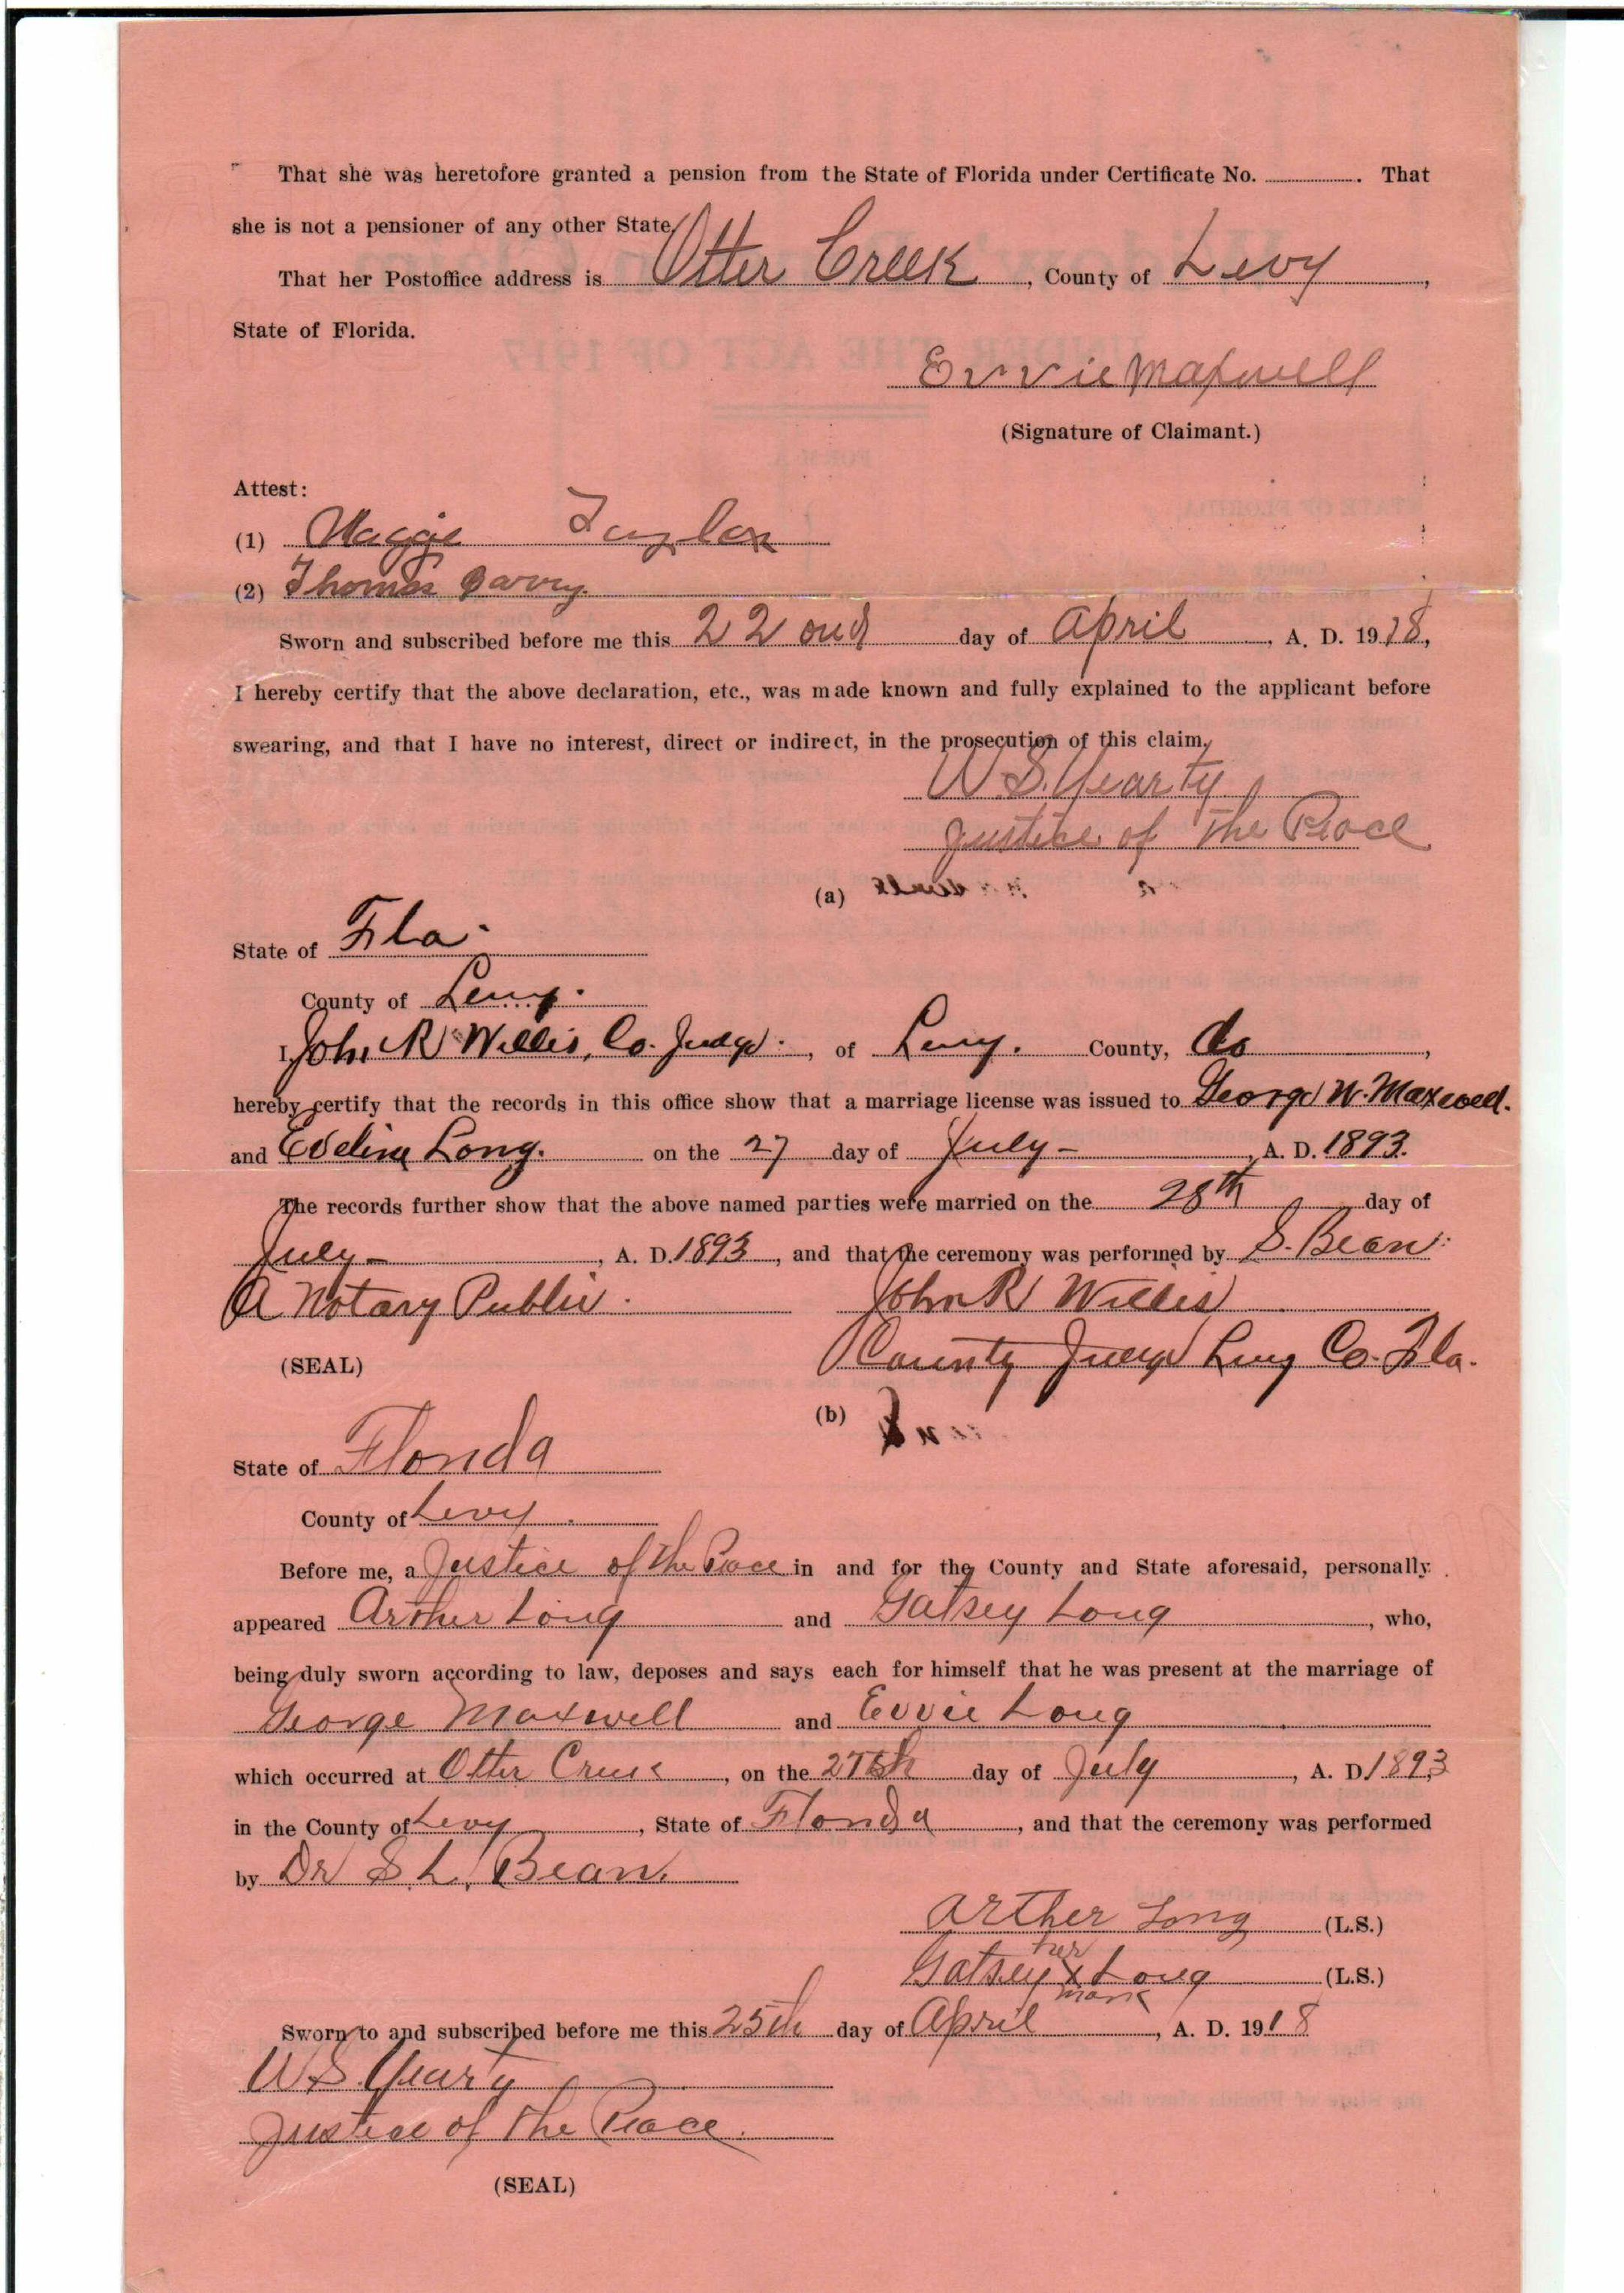 That she was heretofore granted a pension from the State of Florida under Certificate No. . That
she is not a pensioner of any other State
That her Postoffice address is Otter Creek, County of Levy,
State of Florida.
Evvie Maxwell
(Signature of Claimant.)
Attest:
(1) Maggie Taylor
(2) Thomas
Sworn and subscribed before me this 22 ond day of April, A. D. 1918,
I hereby certify that the above declaration, etc., was made known and fully explained to the applicant before
swearing, and that I have no interest, direct or indirect, in the prosecution of this claim.
W S. Yearty
Justice of the Peace
(a)
State of Fla.
County of Levy.
I, John R Willis, Co. Judge., of Levy. County, do,
hereby certify that the records in this office show that a marriage license was issued to George W. Maxwell.
and Eveline Long. on the 27 day of July -, A. D. 1893.
The records further show that the above named parties were married on the 28th day of
July -, A. D. 1893, and that the ceremony was performed by S. Bean.
A Notary Public. John R Willis
(SEAL) County Judge Levy Co. Fla.
(b)
State of Florida
County of Levy.
Before me, a Justice of the Peace in and for the County and State aforesaid, personally
appeared Arther Long and Gatsey Long, who,
being duly sworn according to law, deposes and says each for himself that he was present at the marriage of
George Maxwell and Evvie Long
which occurred at Otter Creek, on the day of July, A. D 1893
in the County of Levy, State of Florida, and that the ceremony was performed
by Dr S. L. Bean.
Arther Long (L.S.)
her
Gatsey X Long (L.S.)
mark
Sworn to and subscribed before me this 25th day of April, A. D. 1918
W S. Yearty
Justice of the Peace.
(SEAL)